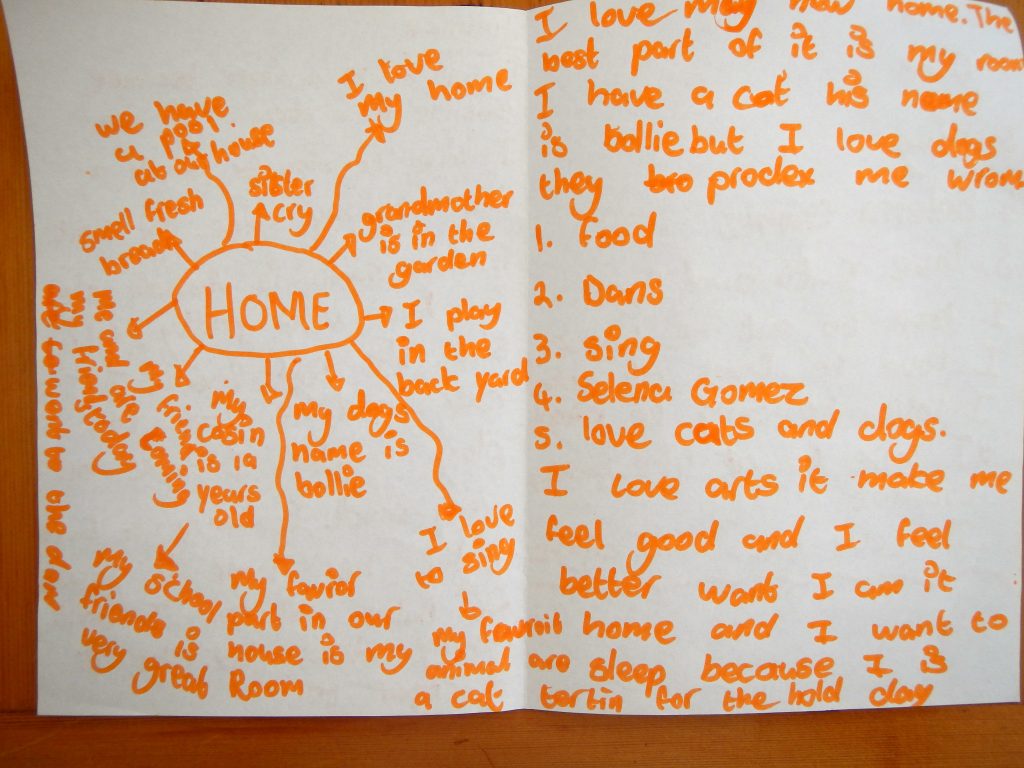 HOME
I love
my home
we have
a pool
at our house
sister
cry
smell fresh
bread
grandmother
is in the
garden
I play
in the
back yard
me and
my friend today
are
my friend
is coming
my
cosin
is 1a
years
old
my dogs
name is
bollie
I love
to sing
my school
friends is
very great
my favior
part in our
house is my
Room
my favruit
animal are
a cat
I love may new home. The
best part of it is my room
I have a cat his name
is bollie but I love dogs
they bro proclex me wrom
1. food
2. Dans
3. sing
4. Selena Gomez
5. love cats and dogs.
I love arts it make me
feel good and I feel
better want I am it
home and I want to
sleep because I is
tertin for the hold day